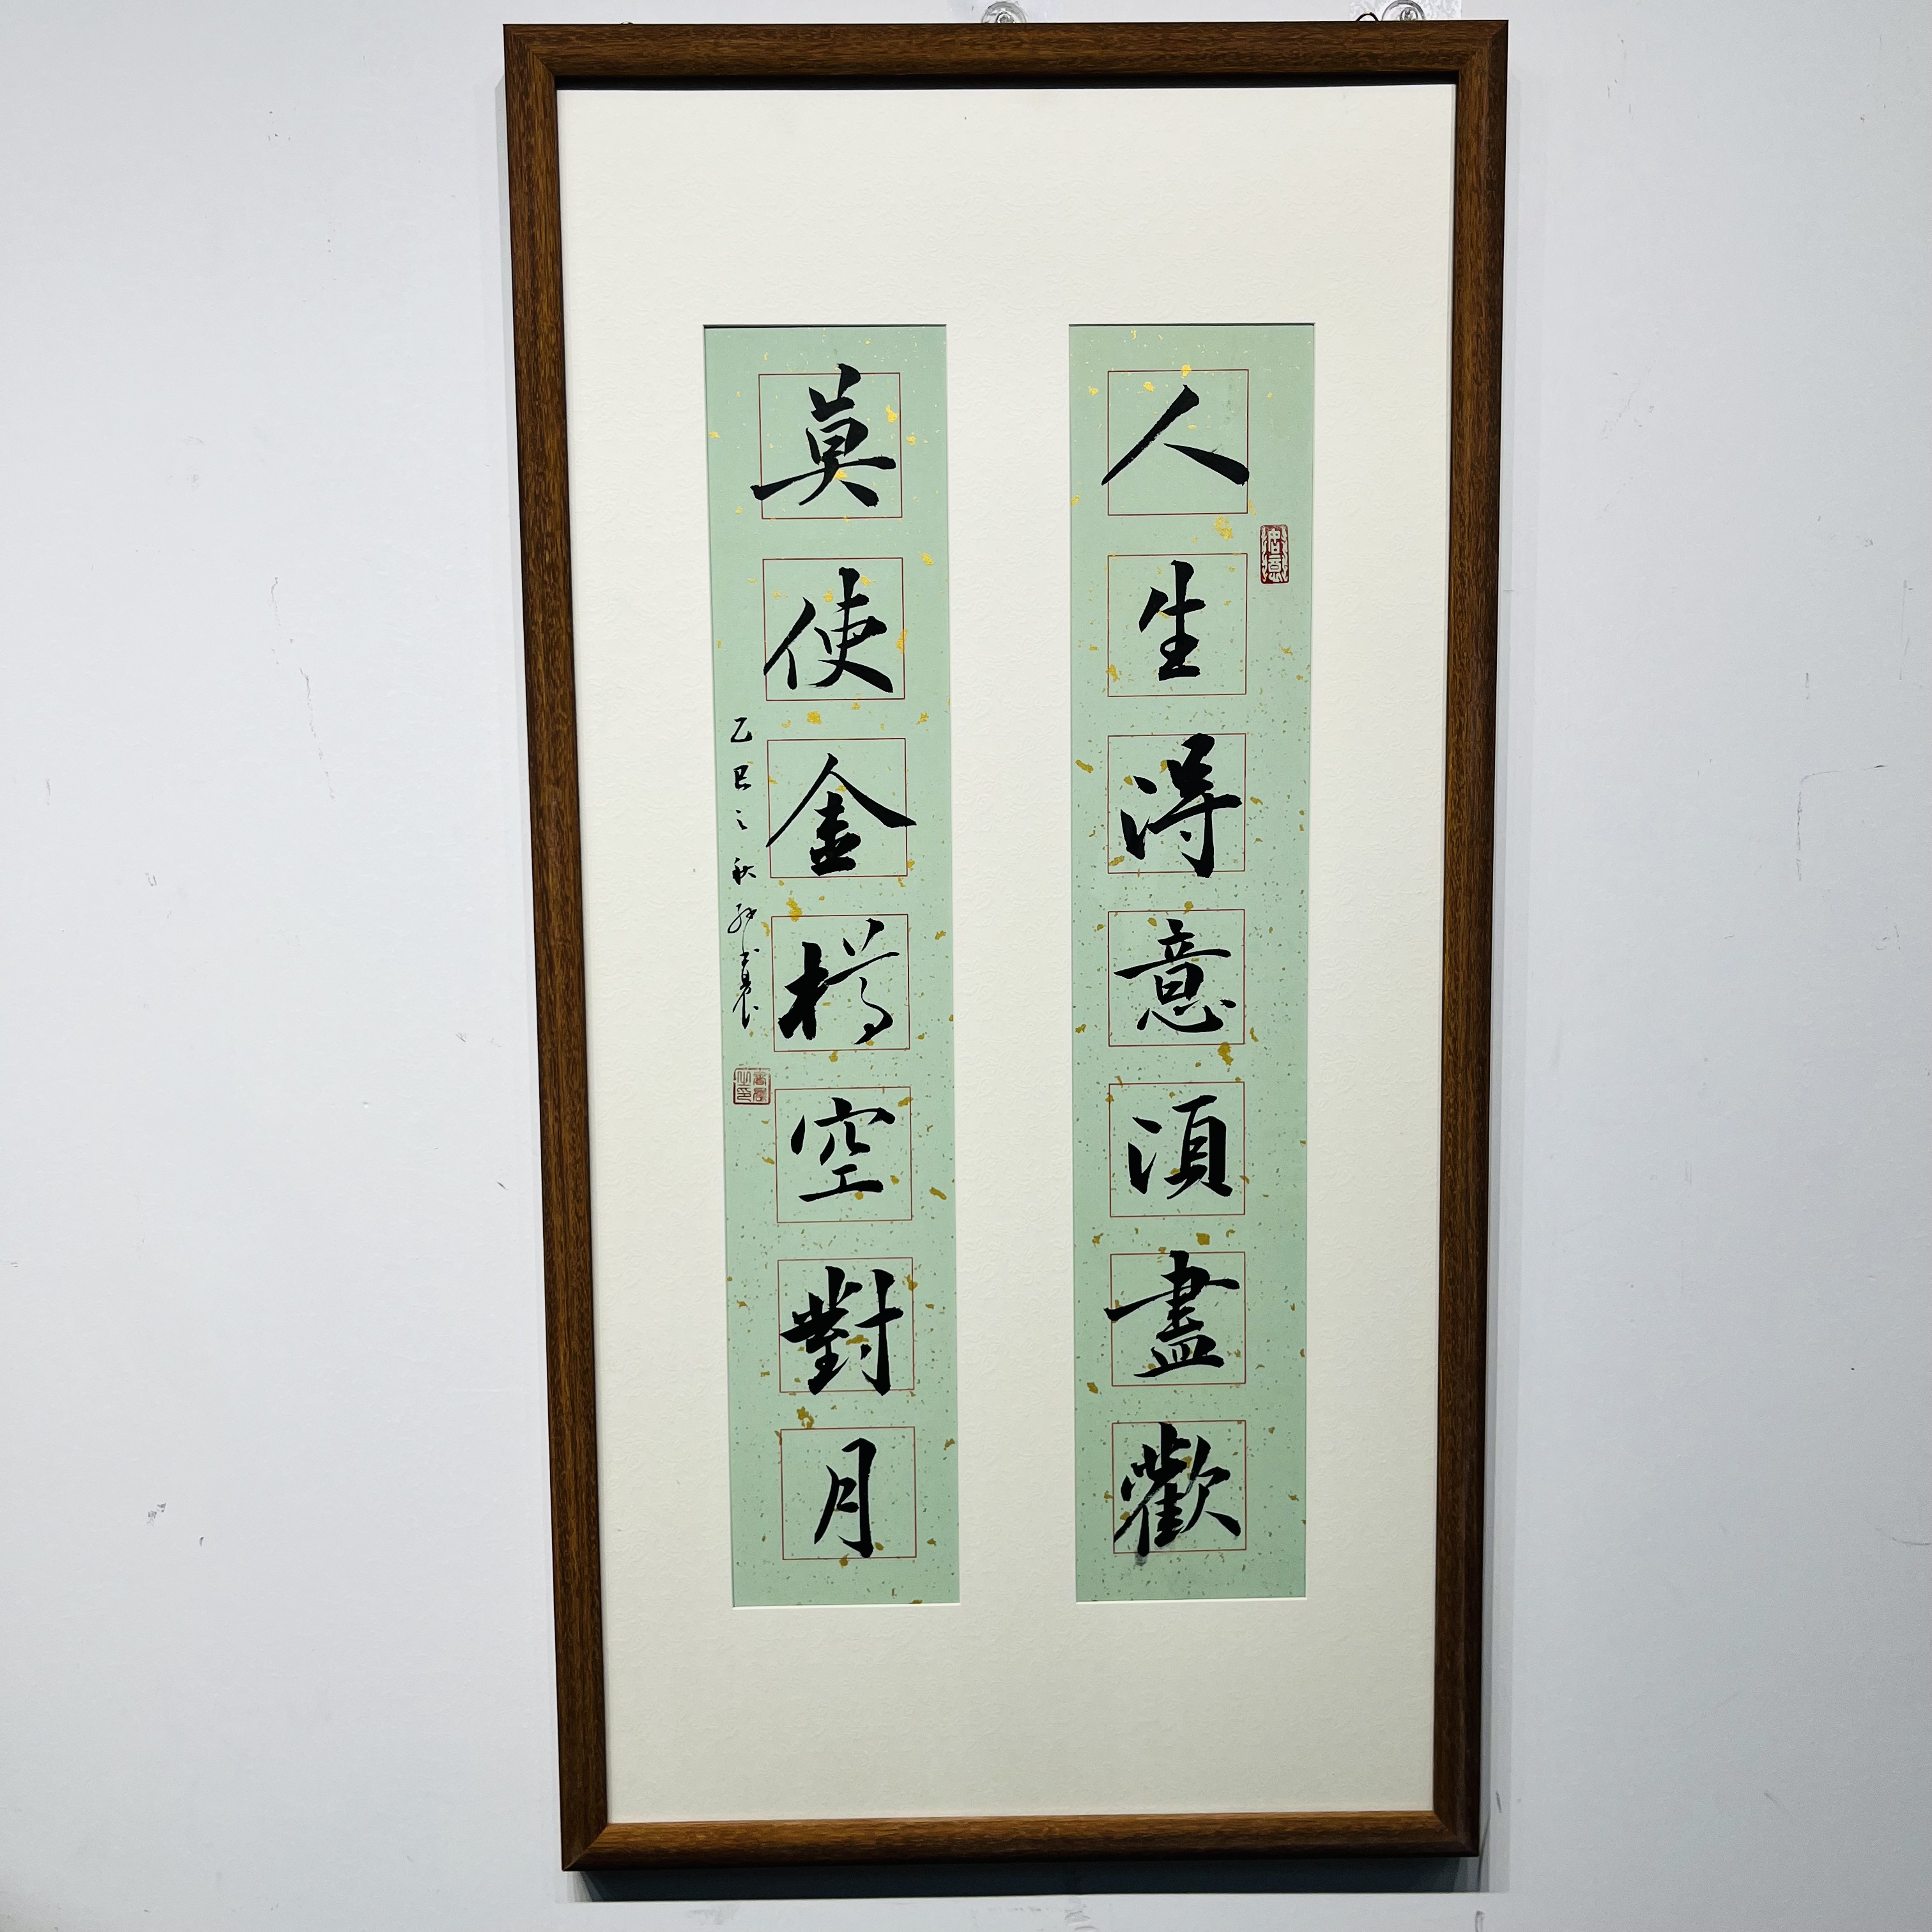 人生得意須盡歡
莫使金樽空對月
乙巳之秋